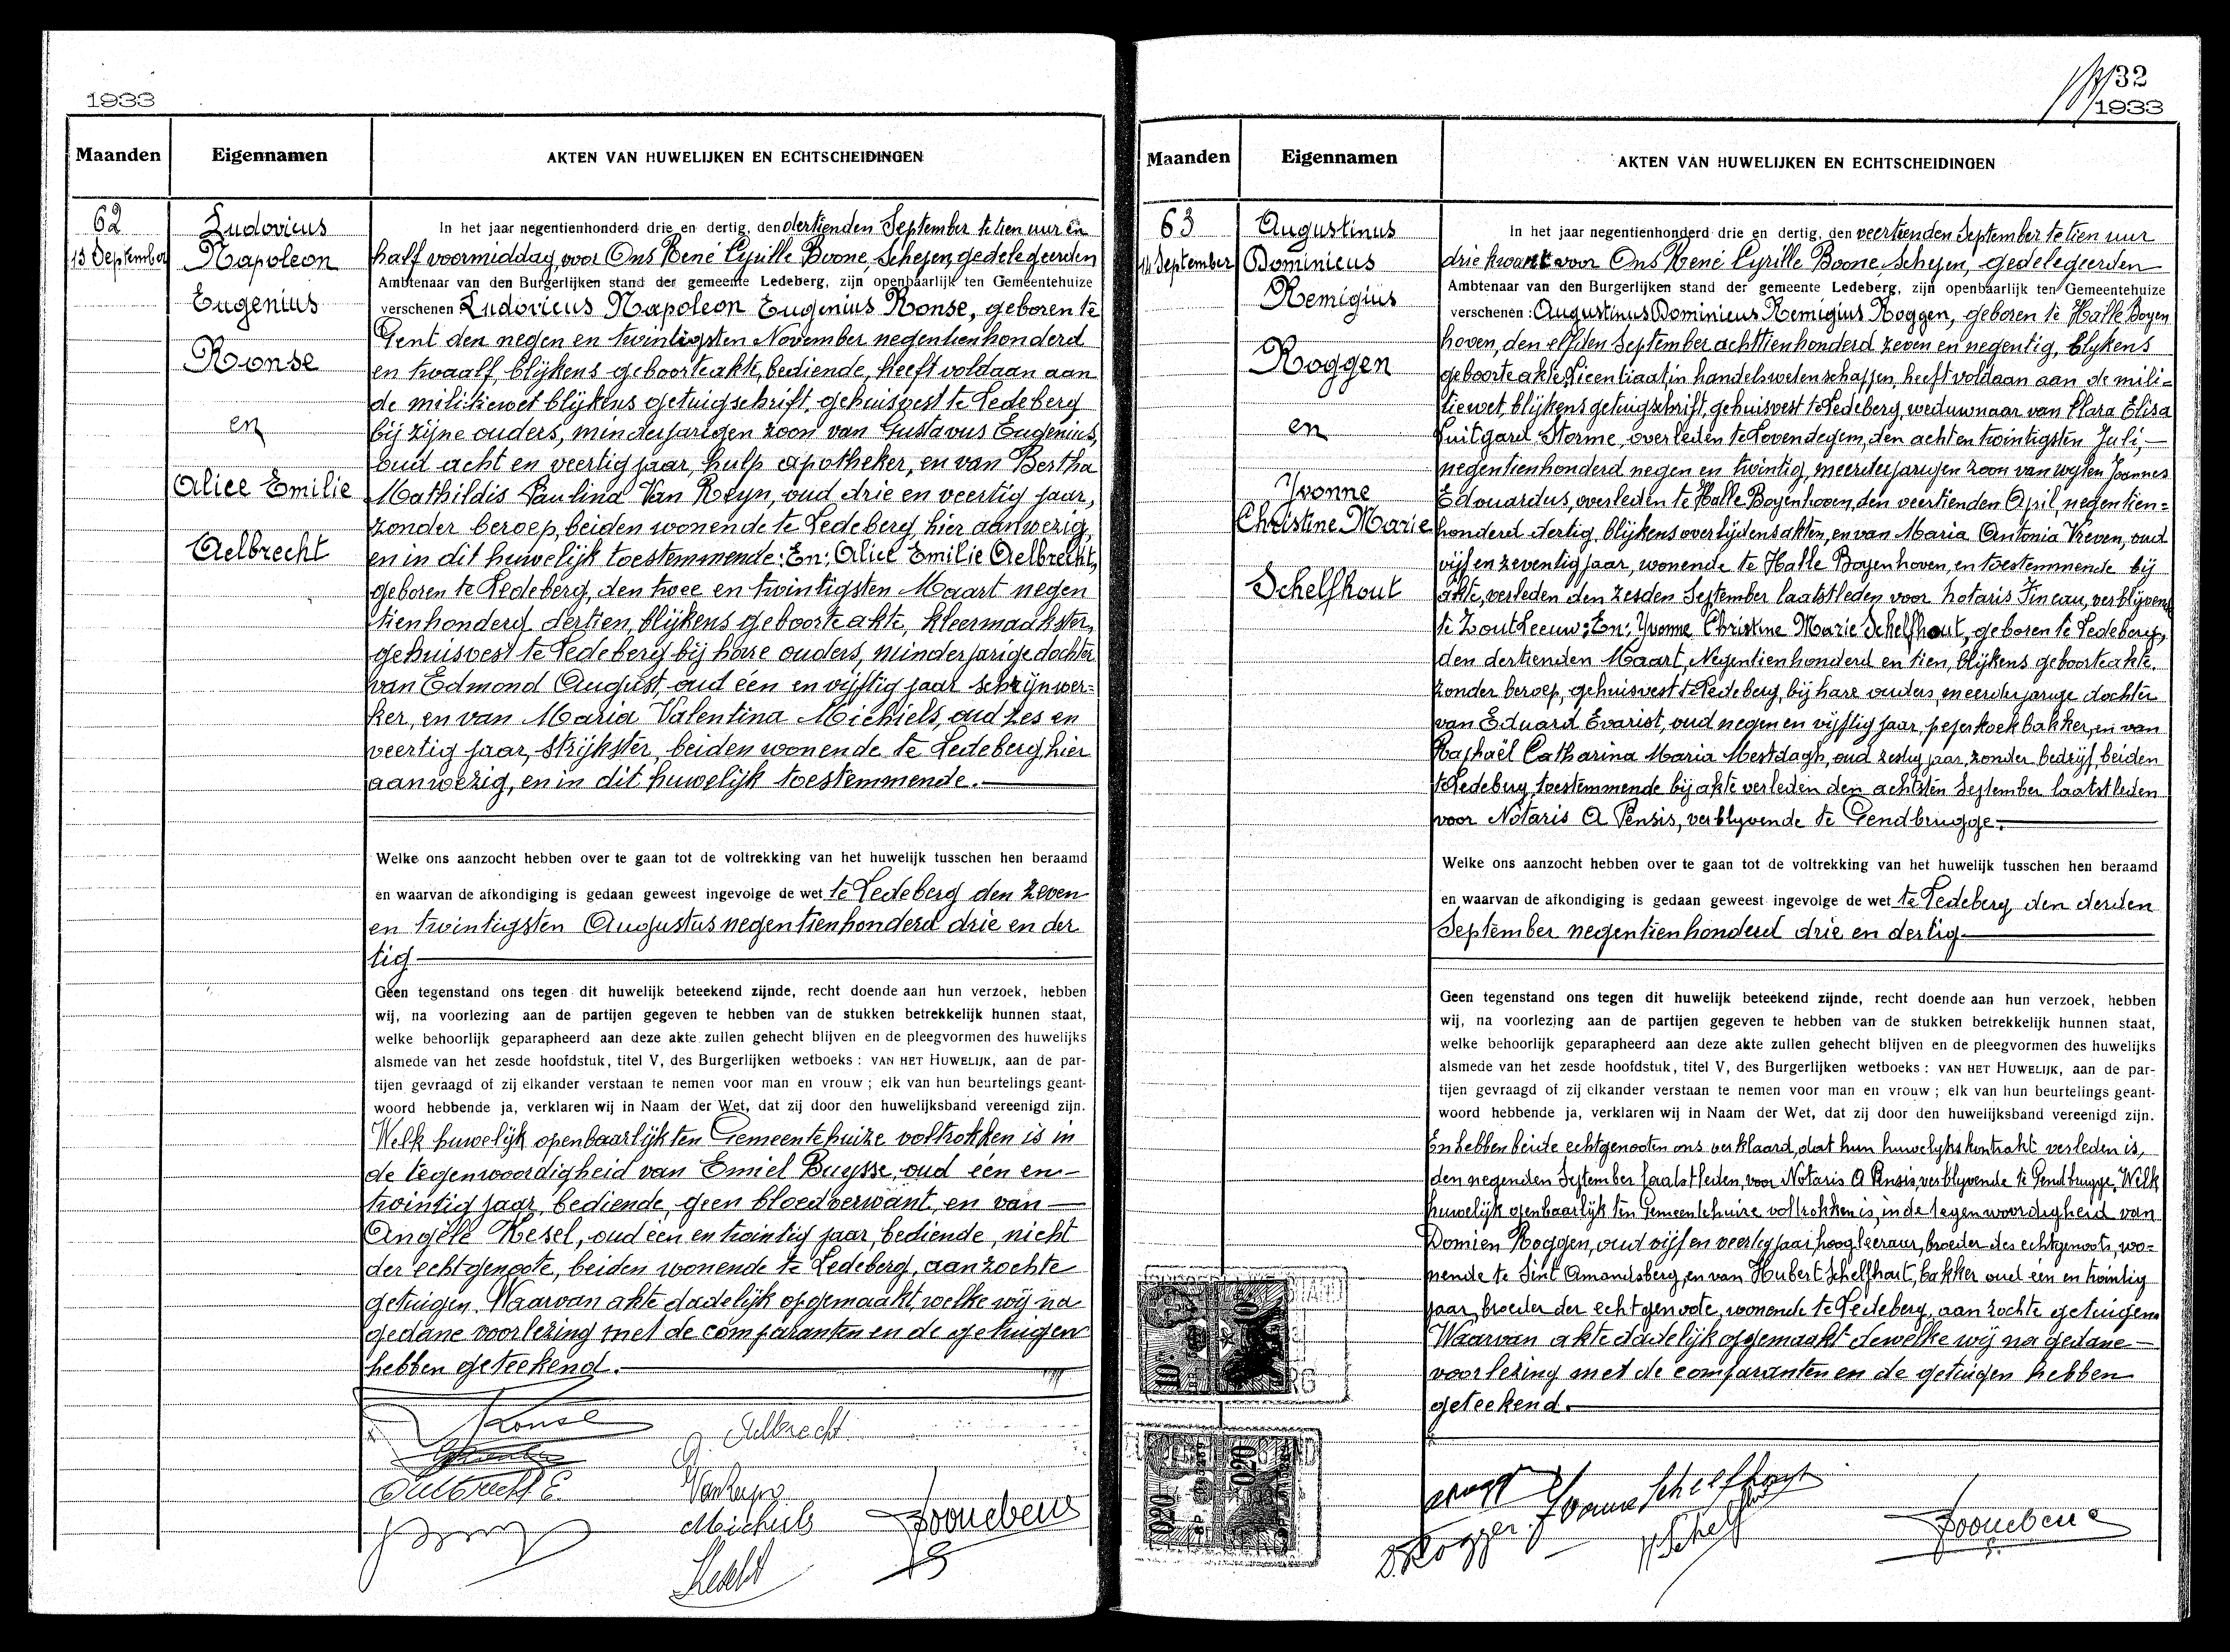 1933
Maanden
Eigennamen
AKTEN VAN HUWELIJKEN EN ECHTSCHEIDINGEN
62
13 September
Ludovicus
Napoleon
Eugenius
Ronse
en
Alice Emilie
Aelbrecht
In het jaar negentienhonderd drie en dertig, den dertienden September te tien uur en
half voormiddag, voor Ons René Cyrille Boone, Schepen, gedelegeerden
Ambtenaar van den Burgerlijken stand der gemeente Ledeberg, zijn openbaarlijk ten Gemeentehuize
verschenen Ludovicus Napoleon Eugenius Ronse, geboren te
Gent den negen en twintigsten November negentienhonderd
en twaalf, blijkens geboorteakte, bediende, heeft voldaan aan
de militiewet blijkens getuigschrift, gehuisvest te Ledeberg
bij zijne ouders, minderjarigen zoon van Gustavus Eugenius,
oud acht en veertig jaar, hulp apotheker, en van Bertha
Mathildis Paulina Van Reyn, oud drie en veertig jaar,
zonder beroep, beiden wonende te Ledeberg, hier aanwezig,
en in dit huwelijk toestemmende: En: Alice Emilie Aelbrecht,
geboren te Ledeberg, den twee en twintigsten Maart negen
tienhonderd dertien, blijkens geboorteakte, kleermaakster,
gehuisvest te Ledeberg bij hare ouders, minderjarige dochter
van Edmond August, oud één en vijftig jaar schrijnwer=
ker, en van Maria Valentina Michiels, oud zes en
veertig jaar, strijkster, beiden wonende te Ledeberg, hier
aanwezig, en in dit huwelijk toestemmende.
Welke ons aanzocht hebben over te gaan tot de voltrekking van het huwelijk tusschen hen beraamd
en waarvan de afkondiging is gedaan geweest ingevolge de wet te Ledeberg den zeven
en twintigsten Augustus negentienhonderd drie en der
tig
Geen tegenstand ons tegen dit huwelijk beteekend zijnde, recht doende aan hun verzoek, hebben
wij, na voorlezing aan de partijen gegeven te hebben van de stukken betrekkelijk hunnen staat,
welke behoorlijk geparapheerd aan deze akte zullen gehecht blijven en de pleegvormen des huwelijks
alsmede van het zesde hoofdstuk, titel V, des Burgerlijken wetboeks : VAN HET HUWELIJK, aan de par-
tijen gevraagd of zij elkander verstaan te nemen voor man en vrouw ; elk van hun beurtelings geant-
woord hebbende ja, verklaren wij in Naam der Wet, dat zij door den huwelijksband vereenigd zijn.
Welk huwelijk openbaarlijk ten Gemeentehuize voltrokken is in
de tegenwoordigheid van Emiel Buysse, oud één en-
twintig jaar, bediende, geen bloedverwant, en van
Angèle Kesel, oud één en twintig jaar, bediende, nicht
der echtgenoote, beiden wonende te Ledeberg, aanzochte
getuigen. Waarvan akte dadelijk opgemaakt, welke wij na
gedane voorlezing met de comparanten en de getuigen
hebben geteekend.
Ronse
A. Aelbrecht
Aelbrecht E.
Michiels
32
1933
Maanden
Eigennamen
AKTEN VAN HUWELIJKEN EN ECHTSCHEIDINGEN
63
14 September
Augustinus
Dominicus
Remigius
Roggen
en
Yvonne
Christine Marie
Schelfhout
In het jaar negentienhonderd drie en dertig, den veertienden September te tien uur
drie kwart voor Ons René Cyrille Boone, Schepen, gedelegeerden
Ambtenaar van den Burgerlijken stand der gemeente Ledeberg, zijn openbaarlijk ten Gemeentehuize
verschenen : Augustinus Dominicus Remigius Roggen, geboren te Halle Boyen
hoven, den elfden September achttienhonderd zeven en negentig, blijkens
geboorteakte, Licentiaat in handelswetenschappen, heeft voldaan aan de mili=
tiewet, blijkens getuigschrift, gehuisvest te Ledeberg, weduwnaar van Clara Elisa
Luitgard Storme, overleden te Lovendegem, den acht en twintigsten Juli,
negentienhonderd negen en twintig, meerderjarigen zoon van wijlen Joannes
Edouardus, overleden te Halle Boyenhoven, den veertienden April negentien=
honderd dertig, blijkens overlijdensakten, en van Maria Antonia Vreven, oud
vijf en zeventig jaar, wonende te Halle Boyenhoven, en toestemmende bij
akte, verleden den zesden September laatstleden voor notaris Fineau, verblijvend
te Zout Leeuw; En: Yvonne Christine Marie Schelfhout, geboren te Ledeberg,
den dertienden Maart, Negentienhonderd en tien, blijkens geboorteakte,
zonder beroep, gehuisvest te Ledeberg, bij hare ouders, meerderjarige dochter
van Eduard Evarist, oud negen en vijftig jaar, peperkoekbakker, en van
Raphaël Catharina Maria Mestdagh, oud zestig jaar, zonder bedrijf, beiden
te Ledeberg, toestemmende bij akte verleden den achtsten September laatstleden
voor Notaris A Pensis, verblyvende te Gendbrugge.
Welke ons aanzocht hebben over te gaan tot de voltrekking van het huwelijk tusschen hen beraamd
en waarvan de afkondiging is gedaan geweest ingevolge de wet te Ledeberg den derden
September negentienhonderd drie en dertig
Geen tegenstand ons tegen dit huwelijk beteekend zijnde, recht doende aan hun verzoek, hebben
wij, na voorlezing aan de partijen gegeven te hebben van de stukken betrekkelijk hunnen staat,
welke behoorlijk geparapheerd aan deze akte zullen gehecht blijven en de pleegvormen des huwelijks
alsmede van het zesde hoofdstuk, titel V, des Burgerlijken wetboeks : VAN HET HUWELIJK, aan de par-
tijen gevraagd of zij elkander verstaan te nemen voor man en vrouw ; elk van hun beurtelings geant-
woord hebbende ja, verklaren wij in Naam der Wet, dat zij door den huwelijksband vereenigd zijn.
En hebben beide echtgenooten ons verklaard, dat hun huwelijkskontrakt verleden is,
den negenden September laatstleden, voor Notaris A Pensis, verblyvende te Gendbrugge. Welk
huwelijk openbaarlijk ten Gemeentehuize voltrokken is, in de tegenwoordigheid van
Domien Roggen, oud vijf en veertig jaar, hoogleeraar, broeder des echtgenoots, wo=
nende te Sint Amandsberg, en van Hubert Schelfhout, bakker oud één en twintig
jaar, broeder der echtgenoote, wonende te Ledeberg, aanzochte getuigen.
Waarvan akte dadelijk opgemaakt dewelke wij na gedane
voorlezing met de comparanten en de getuigen hebben
geteekend.
10
0.20
0.20
Yvonne Schelfhout
D. Roggen
H Schelfhout